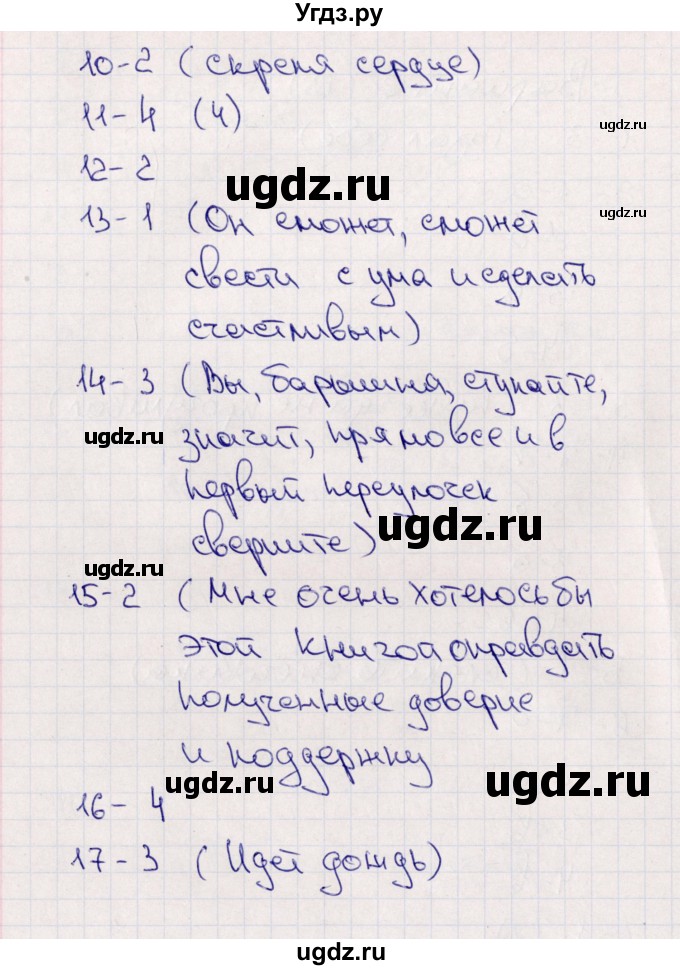 Угдз.ру
10-2 (скрепя сердце)
11-4 (4)
ugdz.ru
12-2
ugdz.ru
13-1 (Он сможет, сможет
ugdz.ru
свести с ума и сделать
счастливым)
14-3 (Вы, барышня, ступайте,
ugdz.ru
значит, прямо все и в
первый переулочек
ugdz.ru
свершите)
ugdz.ru
15-2 (Мне очень хотелось бы
этой книгой оправдать
полученные доверие
и поддержку
ugdz.ru
ugdz.ru
16-4
17-3 (Идет дождь)
ugdz.ru